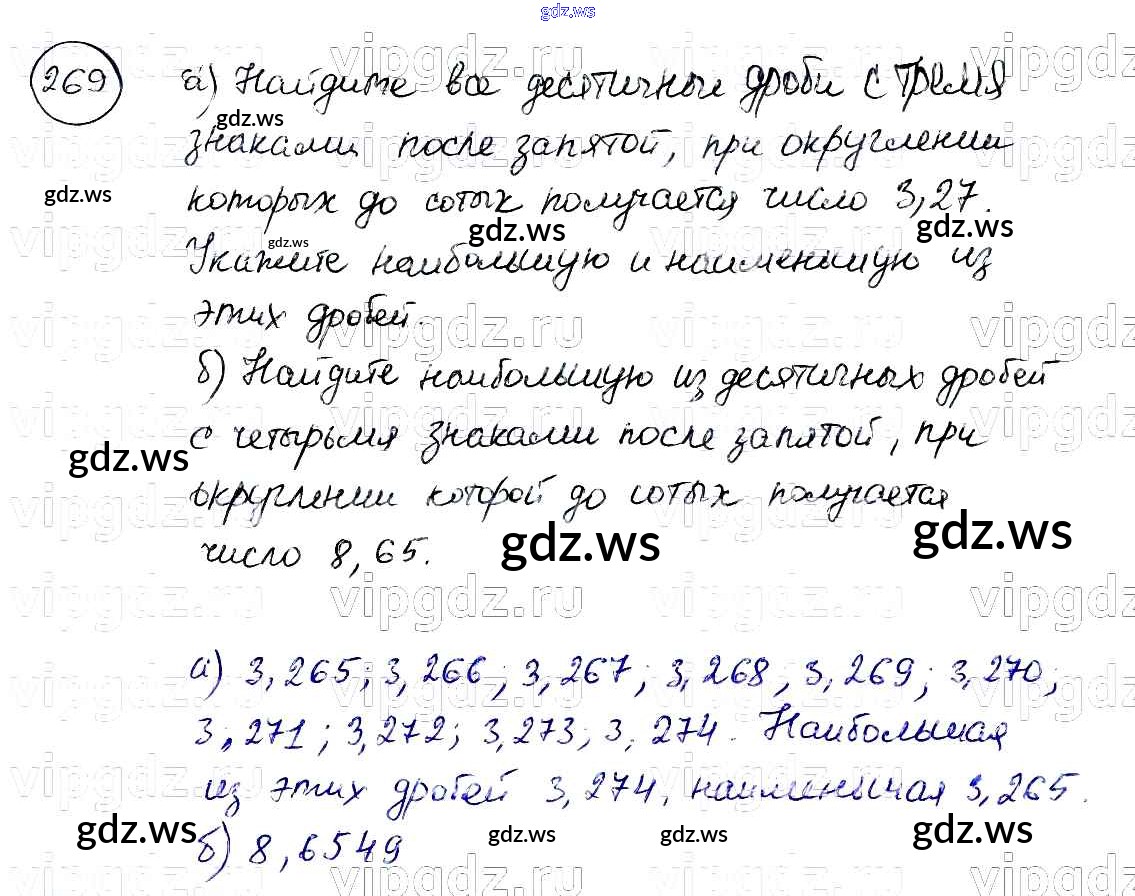 gdz.ws
269 а) Найдите все десятичные дроби с тремя
gdz.ws
знаками после запятой, при округлении
gdz.ws
которых до сотых получается число 3,27.
gdz.ws gdz.ws gdz.ws
Укажите наибольшую и наименьшую из
этих дробей.
б) Найдите наибольшую из десятичных дробей
с четырьмя знаками после запятой, при
gdz.ws
округлении которой до сотых получается
число 8,65.
gdz.ws gdz.ws
vipgdz.ru vipgdz.ru vipgdz.ru
а) 3,265; 3,266; 3,267; 3,268, 3,269; 3,270;
3,271; 3,272; 3,273; 3,274. Наибольшая
из этих дробей 3,274, наименьшая 3,265.
gdz.ws gdz.ws gdz.ws
б) 8,6549